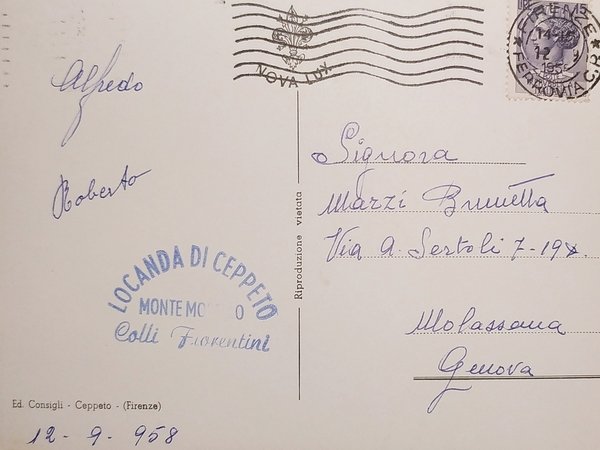 NOVA LUX
LIRE 15
FIRENZE
FERROVIA C.P.
14-15
12 9
195
Alfredo
Roberto
LOCANDA DI CEPPETO
MONTE MO O
Colli Fiorentini
Ed. Consigli - Ceppeto - (Firenze)
12 - 9 - 958
Riproduzione vietata
Signora
Marzi Brunetta
Via A. Sertoli 7-19
Molassana
Genova